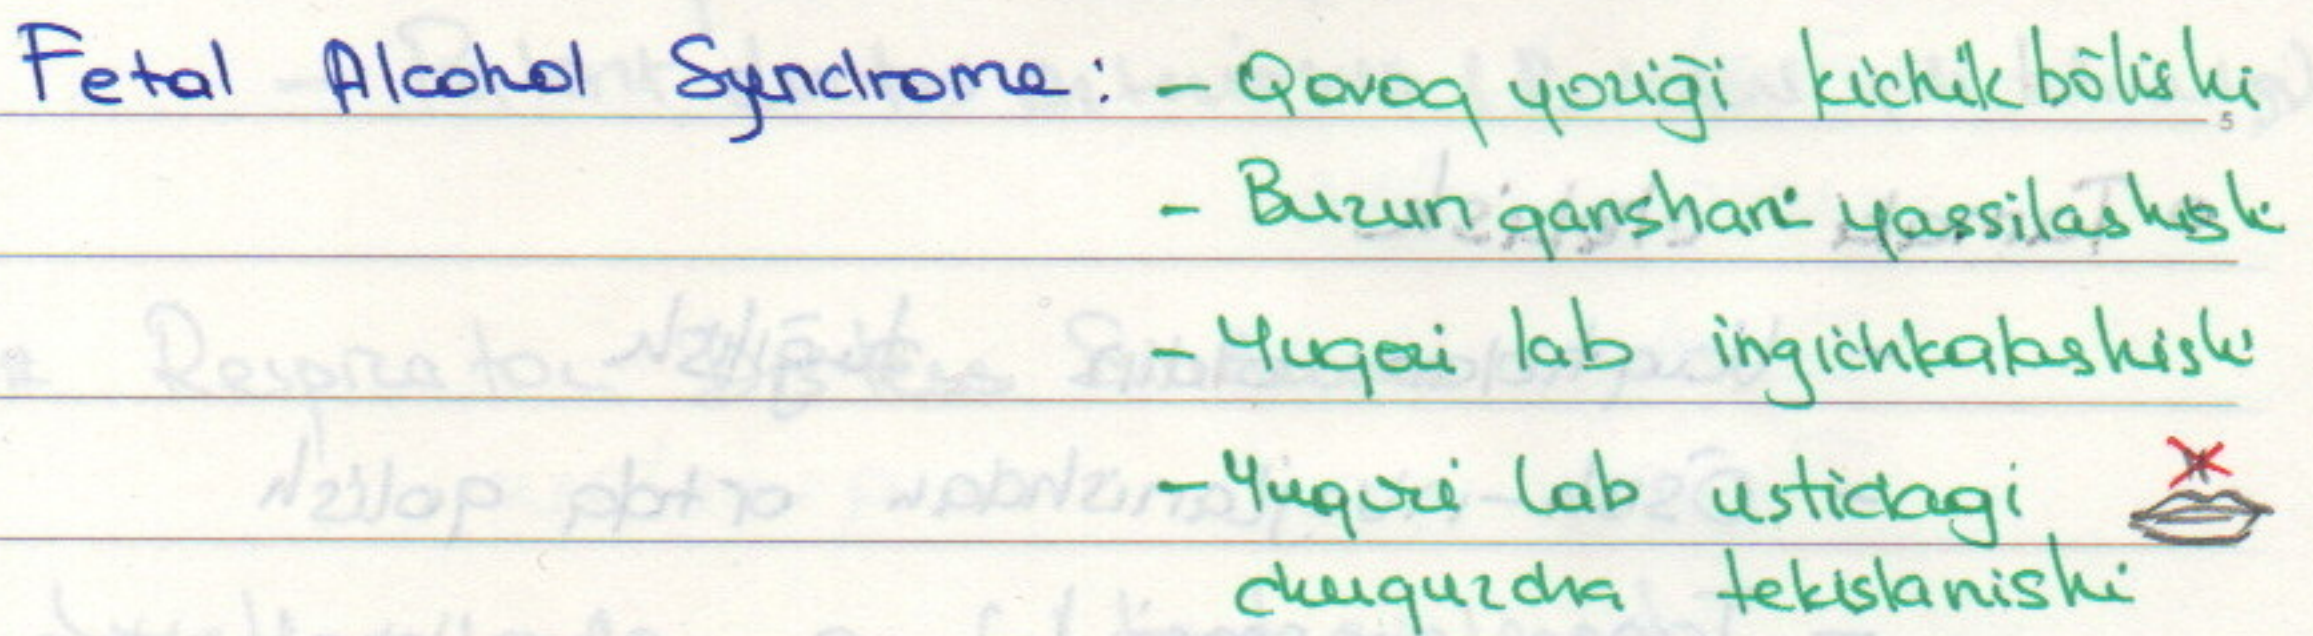 Fetal Alcohol Syndrome: - Qovoq yorig̃i kichik bõlishi
5
- Burun qanshari yassilashishi
- Yuqori lab ingichkalashishi
- Yuqori lab ustidagi
chuqurcha tekislanishi